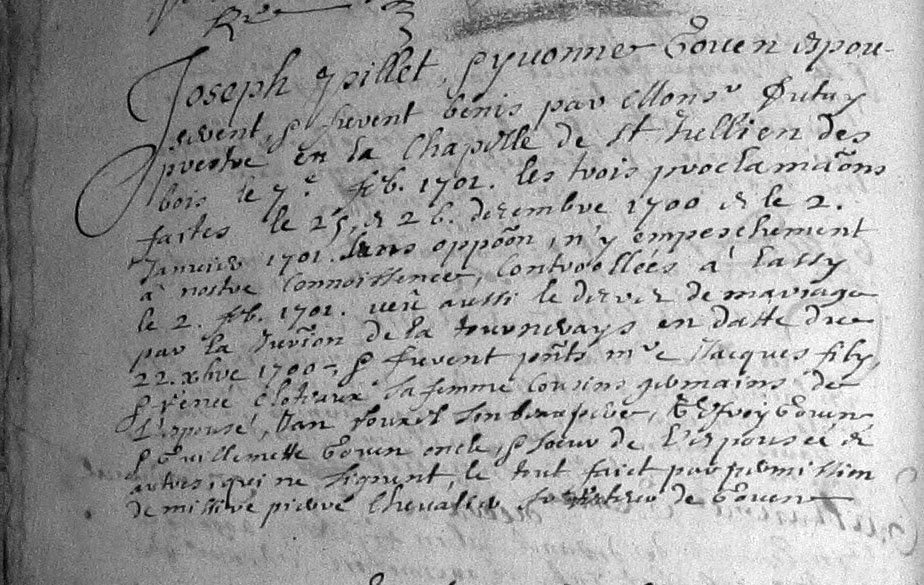 Joseph Josillet, & yvonne Goven espou-
serent, & furent benis par Monsr Dutay
prestre en la Chapelle de St hellien des
bois le 7e feb. 1701. les trois proclamaõns
faites le 25, & 26. decembre 1700 & le 2.
Janvier 1701. sans oppõon, n'y empeschement
a nostre Connoissence, Controollées a Lassy
le 2. feb. 1701. veu aussi le decret de mariage
par la Jurion de la tournerays en datte du
22. xbre 1700, & furent pnts mre Jacques fily,
& renée sa femme Cousins germains de
L'epousé, Jan son beaupere, Goven
& Guillemette Goven oncle, & soeur de L'epousée &
autres, qui ne signent, le tout faict par permission
de missire pierre Chevalier Recteur de Goven